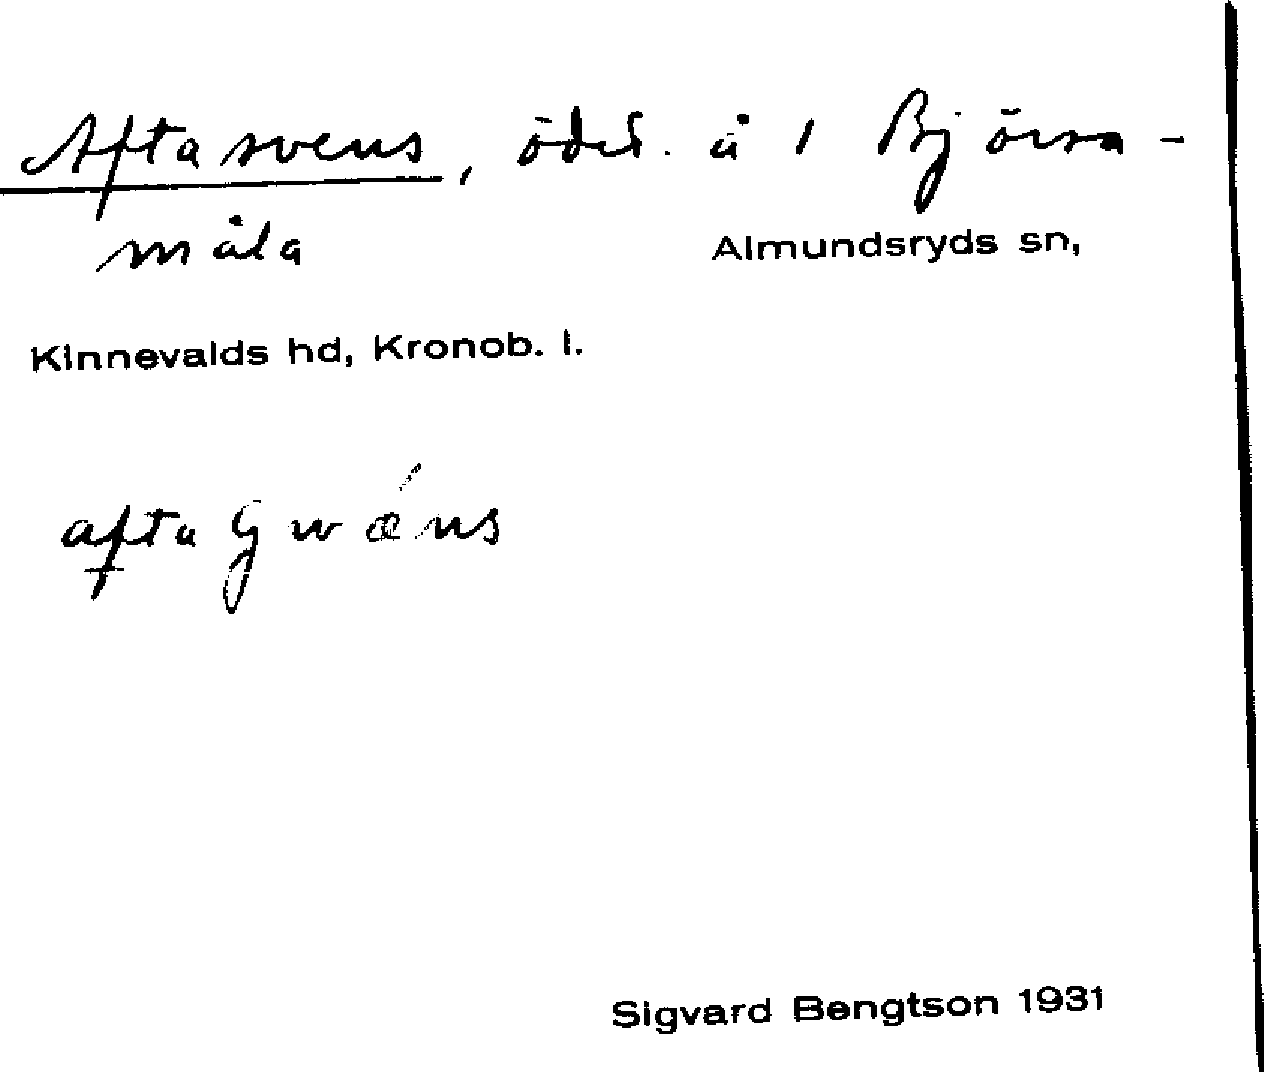 Aftasvens, ödet. å 1 Björsa-
måla
Almundsryds sn,
Kinnevalds hd, Kronob. l.
afta
Sigvard Bengtson 1931